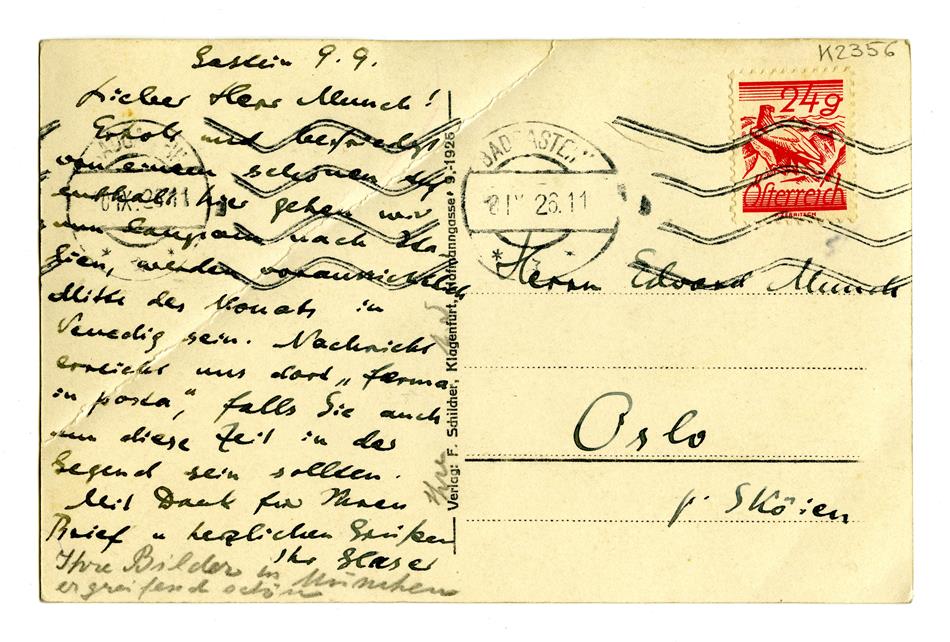 K2356
Gastein 9.9.
Lieber Herr Munch!
Erholt und befriedigt
von einem schönen Auf-
enthalt hier gehen wir
nun langsam nach Ita-
lien, werden voraussichtlich
Mitte des Monats in
Venedig sein. Nachricht
erreicht uns dort "ferma
in posta", falls Sie auch
um diese Zeit in der
Gegend sein sollten.
Mit Dank für Ihren
Brief u herzlichen Grüßen
Ihr Glaser
Ihre Bilder in München
ergreifend schön
Verlag: F. Schilcher, Klagenfurt, 9.-1925
BADGASTEIN
IX 26.11
BADGASTEIN
IX 26.11
24g
Österreich
Herrn Edvard Munch
Oslo
p. SKöien